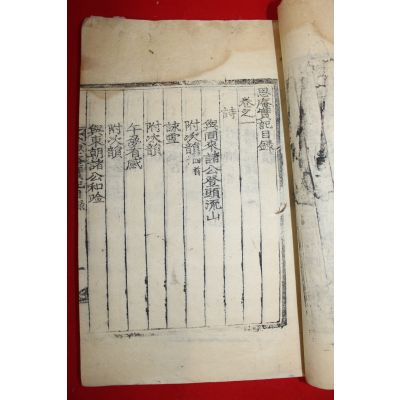 恩庵實記目錄
卷之一
詩
與同來諸公登頭流山
附次韻四首
詠雪
附次韻
午夢有感
附次韻
與東朝諸公和吟